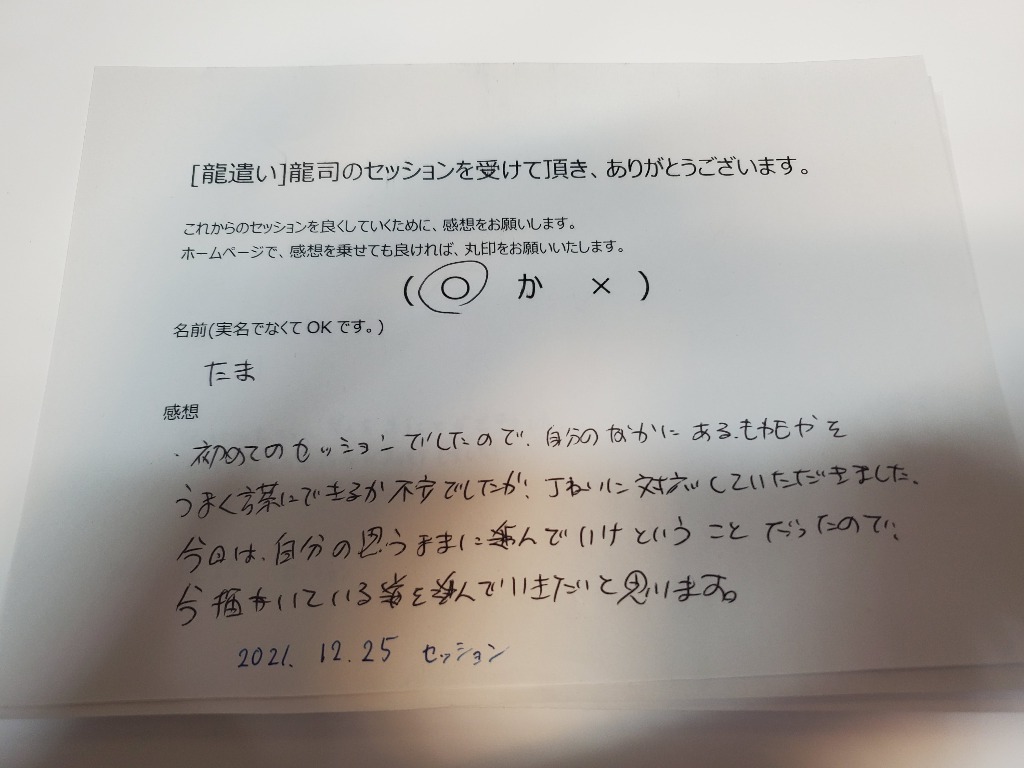 [龍遣い]龍司のセッションを受けて頂き、ありがとうございます。
これからのセッションを良くしていくために、感想をお願いします。
ホームページで、感想を乗せても良ければ、丸印をお願いいたします。
(〇 か ×)
名前(実名でなくてOKです。)
たま
感想
・初めてのセッションでしたので、自分のなかにあるもやもやを
うまく言葉にできるか不安でしたが、丁ねいに対応していただきました。
今日は、自分の思うままに進んでいけということだったので、
今描いている を進んでいきたいと思います。
2021.12.25 セッション